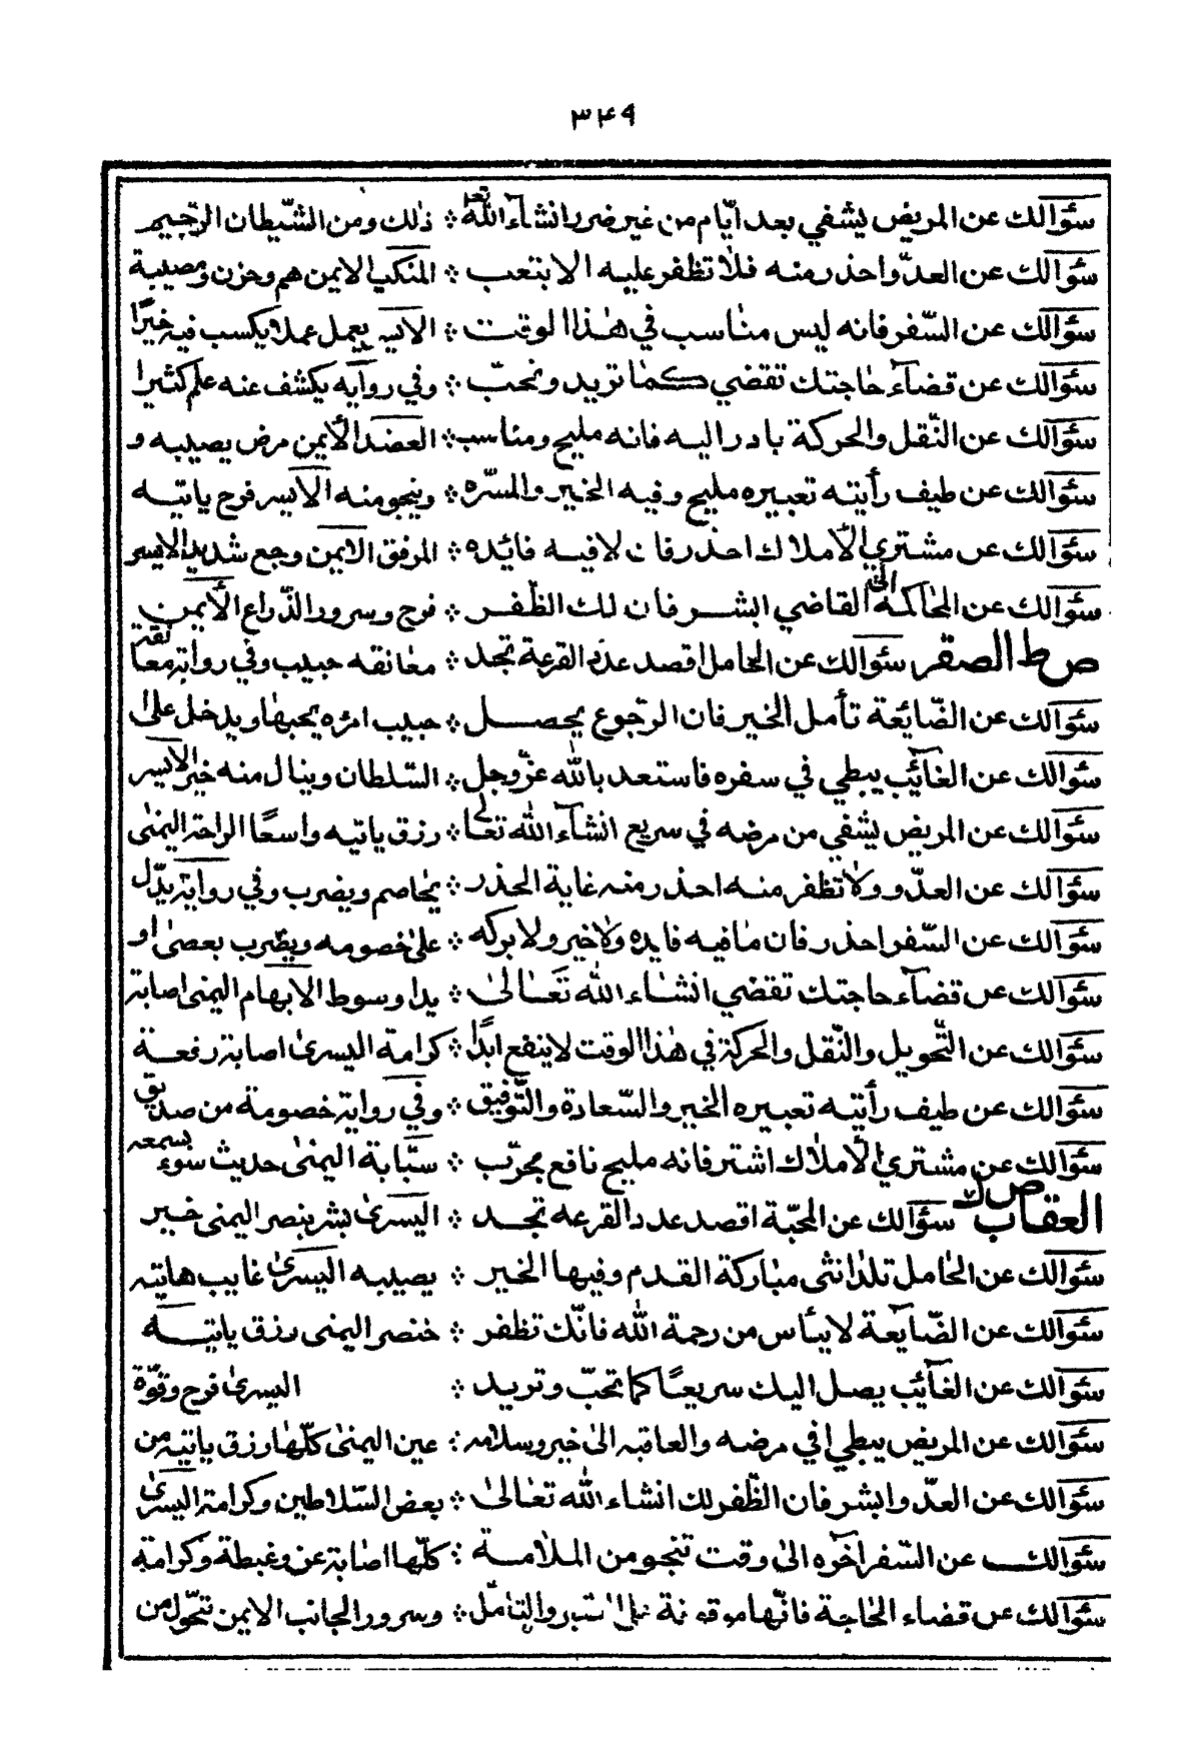 ٣٤٩
سئوالك عن المريض يشفي بعد ايّام من غير ضرر انشآء اللّه تعا ∴ ذلك ومن الشّيطان الرّجيم
سئوالك عن العدّو احذر منه فلا تظفر عليه الا بتعب ∴ المنكب الايمن هم وحزن ومصيبة
سئوالك عن السّفر فانه ليس مناسب في هٰذا الوقت ∴ الايسر يعمل عملا يكسب فيه خيرًا
سئوالك عن قضآء حاجتك تقضي كما تريد وتحبّ ∴ وفي روايه يكشف عنه علم كثيرا
سئوالك عن النّقل والحركة بادر اليه فانه مليح ومناسب ∴ العضد الأيمن مرض يصيبه و
سئوالك عن طيف رأيته تعبيره مليح وفيه الخير والمسّره ∴ وينجو منه الأيسر فرح ياتيه
سئوالك عن مشتري الأملاك احذر فان لا فيه فائده ∴ المرفق الايمن وجع شديد الايسر
سئوالك عن المحاكمة الى القاضي ابشر فان لك الظّفر ∴ فرح وسرور الذّراع الأيمن
ص ط الصقر سئوالك عن الحامل اقصد عدد القرعة تجد ∴ معانقه حبيب وفي رواية معانقة
سئوالك عن الضّائعة تأمل الخير فان الرّجوع يحصل ∴ حبيب امره يحبها ويدخل على
سئوالك عن الغآئب يبطي في سفره فاستعد باللّه عزّ وجل ∴ السّلطان وينال منه خير الايسر
سئوالك عن المريض يشفي من مرضه في سريع انشآء اللّه تعالى ∴ رزق ياتيه واسعًا الراحة اليمنى
سئوالك عن العدّو ولا تظفر منه احذر منه غاية الحذر ∴ يخاصم ويضرب وفي رواية يدّل
سئوالك عن السّفر احذر فان ما فيه فايده ولا خير ولا بركه ∴ على خصومه ويضرب بعصى او
سئوالك عن قضآء حاجتك تقضي انشاء اللّه تَعَالىٰ ∴ يدا وسوط الابهام اليمنى اصابة
سئوالك عن التّحويل والنّقل والحركة في هٰذا الوقت لا ينفع ابدًا ∴ كرامة اليسرى اصابة رفعة
سئوالك عن طيف رأيته تعبيره الخير والسّعادة والتّوفيق ∴ وفي رواية خصومة من صديق
سئوالك عن مشتري الأملاك اشتر فانه مليح نافع مجرّب ∴ سبّابة اليمنى حديث سوء يسمعه
العقاب ص ك سئوالك عن المحبّة اقصد عدد القرعه تجد ∴ اليسرى بشر بنصر اليمنى خبر
سئوالك عن الحامل تلد انثى مباركة القدم وفيها الخير ∴ يصيبه اليسرى غايب هاتيه
سئوالك عن الضّايعة لا يبأس من رحمة اللّه فانّك تظفر ∴ خنصر اليمنى رزق ياتيه
سئوالك عن الغآئب يصل اليك سريعًا كما تحبّ وتريد ∴ اليسرى فرح وقوّة
سئوالك عن المريض يبطي في مرضه والعاقبه الى خير وسلامه ∴ عين اليمنى كلّها رزق ياتيه من
سئوالك عن العدّو ابشر فان الظّفر لك انشاء اللّه تعالىٰ ∴ بعض السّلاطين وكرامة اليسرى
سئوالك عن السّفر اخّره الى وقت تنجو من الملامة ∴ كلّها اصابة عز وغبطة وكرامة
سئوالك عن قضاء الحاجة فانّها موقوفة والتامّل ∴ وسرور الجانب الايمن تحّول من